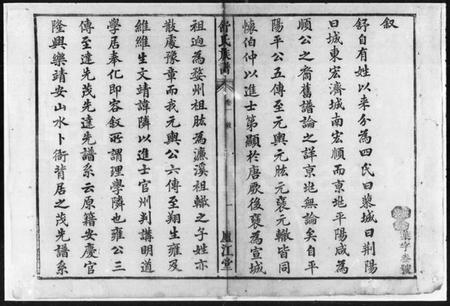 叙
舒自有姓以来分為四氏曰蔡城曰荆陽
曰城東宏濟城南宏順而京兆平陽咸為
順公之裔舊譜論之詳京兆無論矣自平
陽平公五傳至元輿元肱元褒元轍皆同
懷伯仲以進士第顯於唐厥後褒為宣城
舒氏族譜
廬江堂
祖逈為婺州祖肱為濂溪祖轍之子姓亦
散處豫章而我元輿公六傳至翔生雍及
維維生文靖諱隣以進士官州判講明道
學居奉化即容叙所謂理學隣也雍公三
傳至達先茂先達先譜系云原籍安慶官
隆興樂靖安山水卜衙背居之茂先譜系